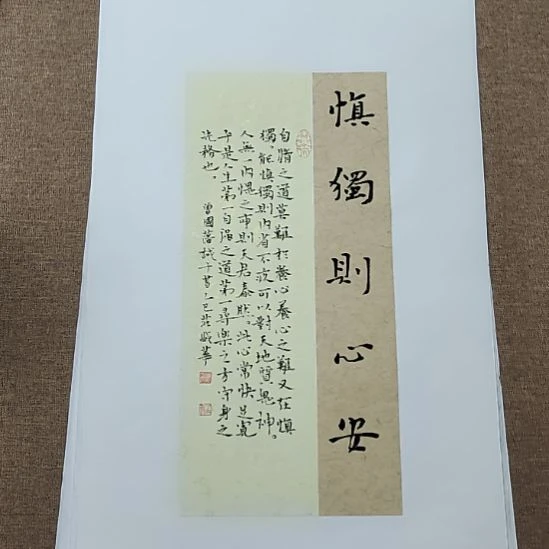 慎獨則心安
自脩之道莫難於養心養心之難又在慎
獨。能慎獨則內省不疚可以對天地質鬼神。
人無一內愧之事則天君泰然。此心常快足寬
平是人生第一自强之道第一尋樂之方守身之
先務也。
曾國藩誡子書乙巳